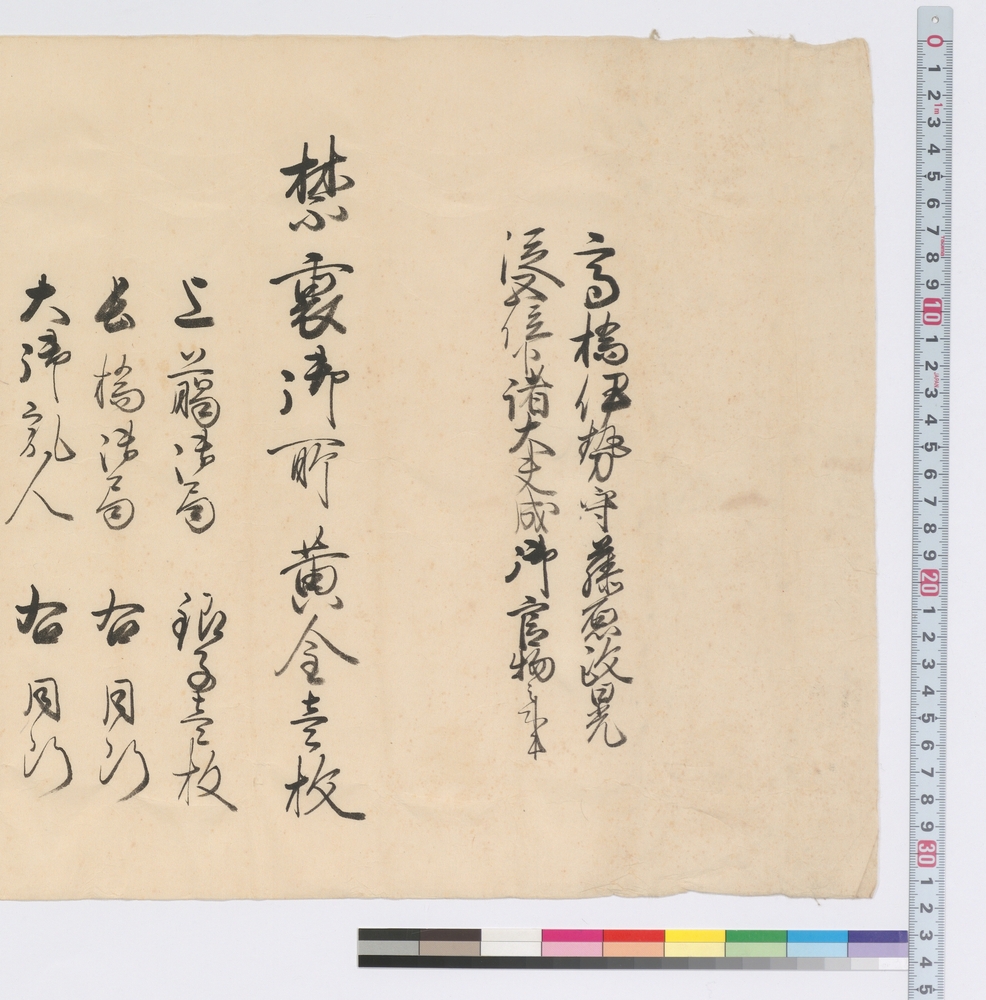 高橋伊勢守藤原政晃
従五位下諸大夫成御官物之事
禁裏御所 黄金壱枚
上臈御局 銀子壱枚
長橋御局 右同断
大御乳人 右同断
0 1 2 3 4 5 6 7 8 9 10 1 2 3 4 5 6 7 8 9 20 1 2 3 4 5 6 7 8 9 30 1 2 3 4 5